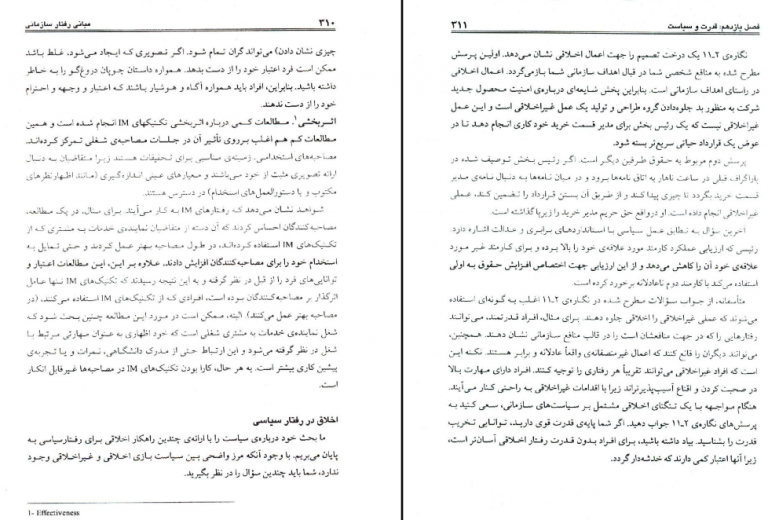 ۳۱۰ مبانی رفتار سازمانی
چیزی نشان دادن) می‌تواند گران تمام شود. اگر تصویری که ایجاد می‌شود، غلط باشد
ممکن است فرد اعتبار خود را از دست بدهد. همواره داستان چوپان دروغ‌گو را به خاطر
داشته باشید. بنابراین، افراد باید همواره آگاه و هوشیار باشند که اعتبار و وجهه و احترام
خود را از دست ندهند.
اثربخشی¹. مطالعات کمی درباره اثربخشی تکنیکهای IM انجام شده است و همین
مطالعات کم هم اغلب برروی تأثیر آن در جلسات مصاحبه‌ی شغلی تمرکز کرده‌اند.
مصاحبه‌های استخدامی، زمینه‌ی مناسبی برای تحقیقات هستند زیرا متقاضیان به دنبال
ارائه تصویری مثبت از خود می‌باشند و معیارهای عینی اندازه‌گیری (مانند اظهارنظرهای
مکتوب و یا دستورالعمل‌های استخدام) در دسترس هستند.
شواهد نشان می‌دهد که رفتارهای IM به کار می‌آیند. برای مثال، در یک مطالعه،
مصاحبه‌کنندگان احساس کردند که آن دسته از متقاضیان نماینده‌ی خدمات به مشتری که از
تکنیک‌های IM استفاده کرده‌اند، در طول مصاحبه بهتر عمل کردند و حتی تمایل به
استخدام خود را برای مصاحبه‌کنندگان افزایش دادند. علاوه بر این، این مطالعات اعتبار و
توانایی‌های فرد را از قبل در نظر گرفته و به این نتیجه رسیدند که تکنیک‌های IM تنها عامل
اثرگذار بر مصاحبه‌کنندگان بوده است، افرادی که از تکنیک‌های IM استفاده می‌کنند، (در
مصاحبه بهتر عمل می‌کنند) البته، ممکن است در مورد این مطالعه چنین بحث شود که
شغل نماینده‌ی خدمات به مشتری شغلی است که خود اظهاری به عنوان مهارتی مرتبط با
شغل در نظر گرفته می‌شود و این ارتباط حتی از مدرک دانشگاهی، نمرات و یا تجربه‌ی
پیشین کاری بیشتر است. به هر حال، کارا بودن تکنیک‌های IM در مصاحبه‌ها غیرقابل انکار
است.
اخلاق در رفتار سیاسی
ما بحث خود درباره‌ی سیاست را با ارائه‌ی چندین راهکار اخلاقی برای رفتارسیاسی به
پایان می‌بریم. با وجود آنکه مرز واضحی بین سیاست بازی اخلاقی و غیراخلاقی وجود
ندارد، شما باید چندین سؤال را در نظر بگیرید.
1- Effectiveness
فصل یازدهم: قدرت و سیاست ۳۱۱
نگاره‌ی ۲ـ۱۱ یک درخت تصمیم را جهت اعمال اخلاقی نشان می‌دهد. اولین پرسش
مطرح شده به منافع شخصی شما در قبال اهداف سازمانی شما بازمی‌گردد. اعمال اخلاقی
در راستای اهداف سازمانی است. بنابراین پخش شایعه‌ای درباره‌ی امنیت محصول جدید
شرکت به منظور بد جلوه‌دادن گروه طراحی و تولید یک عمل غیراخلاقی است و این عمل
غیراخلاقی نیست که یک رئیس بخش برای مدیر قسمت خرید خود کاری انجام دهد تا در
عوض یک قرارداد حیاتی سریع‌تر بسته شود.
پرسش دوم مربوط به حقوق طرفین دیگر است. اگر رئیس بخش توصیف شده در
پاراگراف قبلی در ساعت ناهار به اتاق نامه‌ها برود و در میان نامه‌ها به دنبال نامه‌ی مدیر
قسمت خرید بگردد تا چیزی پیدا کند و از طریق آن بستن قرارداد را تضمین کند، عملی
غیراخلاقی انجام داده است. او درواقع حق حریم مدیر خرید را زیرپا گذاشته است.
آخرین سؤال به تطابق عمل سیاسی با استانداردهای برابری و عدالت اشاره دارد.
رئیسی که ارزیابی عملکرد کارمند مورد علاقه‌ی خود را بالا برده و برای کارمند غیر مورد
علاقه‌ی خود آن را کاهش می‌دهد و از این ارزیابی جهت اختصاص افزایش حقوق به اولی
استفاده می‌کند با کارمند دوم ناعادلانه برخورد کرده است.
متأسفانه، از جواب سؤالات مطرح شده در نگاره‌ی ۲ـ۱۱ اغلب به گونه‌ای استفاده
می‌شوند که عملی غیراخلاقی را اخلاقی جلوه دهند. برای مثال، افراد قدرتمند، می‌توانند
رفتارهایی را که در جهت منافعشان است را در قالب منافع سازمانی نشان دهند. همچنین،
می‌توانند دیگران را قانع کنند که اعمال غیرمنصفانه‌ی واقعاً عادلانه و برابر هستند. نکته این
است که افراد غیراخلاقی می‌توانند تقریباً هر رفتاری را توجیه کنند. افراد دارای مهارت بالا
در صحبت کردن و اقناع آسیب‌پذیرترند زیرا با اقدامات غیراخلاقی به راحتی کنار می‌آیند.
هنگام مواجهه با یک تنگنای اخلاقی مشتمل بر سیاست‌های سازمانی، سعی کنید به
پرسش‌های نگاره‌ی ۲ـ۱۱ جواب دهید. اگر شما پایه‌ی قدرت قوی دارید، توانایی تخریب
قدرت را بشناسید. بیاد داشته باشید، برای افراد بدون قدرت رفتار اخلاقی آسان‌تر است،
زیرا آنها اعتبار کمی دارند که خدشه‌دار گردد.